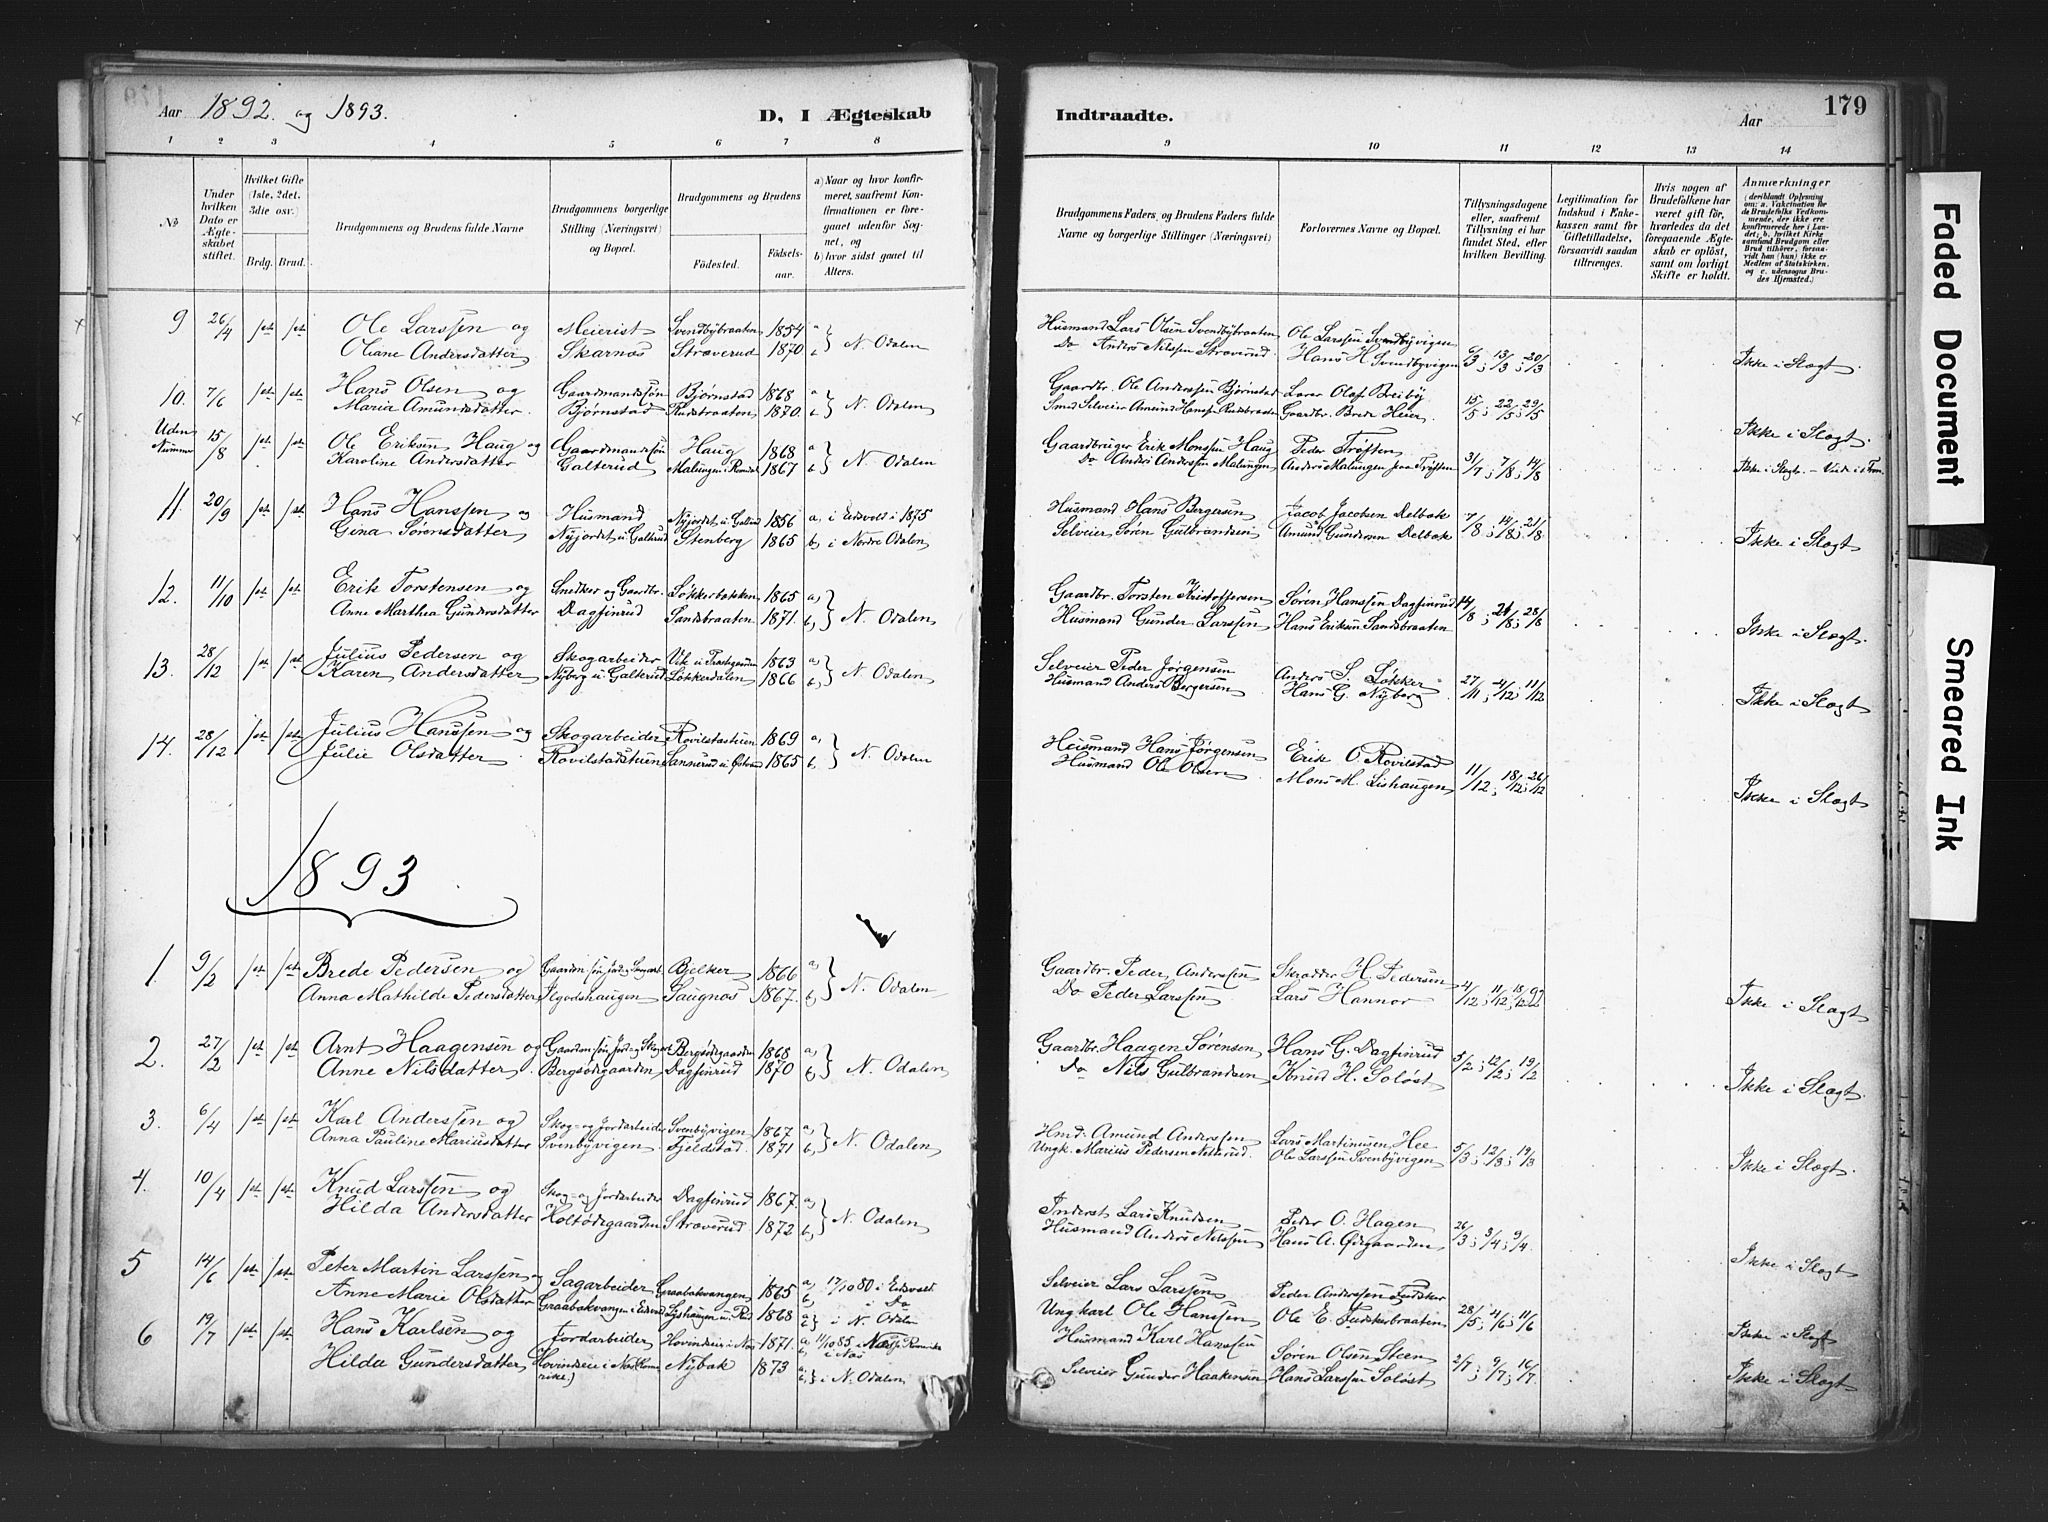 Aar 1892. og 1893.
D, I Ægteskab
1 2 3 4 5 6 7 8
No
Under hvilken Dato er Ægteskabet stiftet.
Hvilket Gifte (1ste, 2det, 3die osv.)
Brdg. Brud.
Brudgommens og Brudens fulde Navne
Brudgommens borgerlige Stilling (Næringsvei) og Bopæl.
Brudgommens og Brudens
Fødested. Fødselsaar.
a) Naar og hvor konfirmeret, saafremt Konfirmationen er foregaaet udenfor Sognet, og
b) hvor sidst gaaet til Alters.
9 26/4 1ste 1ste Ole Larssen og Meierist Svendbybraaten 1854 a)
Oliane Andersdatter Skarnæs Stræverud 1870 b) N. Odalen
10. 7/6 1ste 1ste Hans Olsen og Gaardmandssøn Bjørnstad 1868 a)
Maria Amundsdatter. Bjørnstad Rudsbraaten 1870. b) N. Odalen
Uden Nummer 15/8 1ste 1ste Ole Eriksen Haug og Gaardmandssøn Haug 1868 a)
Karoline Andersdatter Galterud Malungen Romedal 1867 b) N. Odalen
11. 20/9 1ste 1ste Hans Hanssen og Husmand Nyjordet u. Galterud 1856 a, i Eidsvold i 1875
Gina Sørensdatter Nyjordet u. Galterud Stenberg 1865 b, i Nordre Odalen
12. 11/10 1ste 1ste Erik Torstensen og Snedker og Gaardbr. Løkkerbakken 1865 a)
Anne Martha Gundersdatter Dagfinrud Sandsbraaten 1871. b) N. Odalen
13. 28/12 1ste 1ste Julius Pedersen og Skogarbeider Vik u. 1863 a)
Karen Andersdatter Nyberg u. Galterud Løkkerdalen 1866 b) N. Odalen
14. 28/12 1ste 1ste Julius Hanssen og Skogarbeider Rovilstastuen 1869 a)
Julie Olsdatter Rovilstadstuen Sannerud u. 1865 b) N. Odalen
1893
1. 9/2 1ste 1ste Brede Pedersen og Bjelker 1866 a)
Anna Mathilde Pedersdatter Ilgodshaugen Saugnæs 1867. b) N. Odalen
2. 27/2 1ste 1ste Arnt Haagensen og Bergsødegaarden 1868 a)
Anne Nilsdatter Bergsødegaarden Dagfinrud 1870 b) N. Odalen
3. 6/4 1ste 1ste Karl Anderssen og Skog- og Jordarbeider Svenbyvigen 1867 a)
Anna Pauline Mariusdatter Svenbyvigen Fjeldstad. 1871 b) N. Odalen
4. 10/4 1ste 1ste Knud Larssen og Skog- og Jordarbeider Dagfinrud 1867. a)
Hilda Andersdatter Holtødegaarden Stræverud 1872 b) N. Odalen
5 14/6 1ste 1ste Peter Martin Larssen og Sagarbeider Graabakvangen 1865 a, 17/10 80 i Eidsvold
b, i Do
Anne Marie Olsdatter Graabakvangen i Eidsvold Lishaugen u. Rud 1868 i N. Odalen
6 19/7 1ste 1ste Hans Karlsen og Jordarbeider Hovindseie i Næs 1871. a, 11/10 85 i Næs Romerike
b, i Næs
Hilda Gundersdatter Hovindseie i Næs Romerike.) Nybak 1873 a, b, i N. Odalen
Indtraadte.
Aar 179
9 10 11 12 13 14
Brudgommens Faders, og Brudens Faders fulde Navne og borgerlige Stillinger (Næringsvei)
Forlovernes Navne og Bopæl.
Tillysningsdagene eller, saafremt Tillysning ei har fundet Sted, efter hvilken Bevilling.
Legitimation for Indskud i Enkekassen samt for Giftetilladelse, forsaavidt saadan tiltrænges.
Hvis nogen af Brudefolkene har været gift før, hvorledes da det foregaaende Ægteskab er opløst, samt om lovligt Skifte er holdt.
Anmærkninger (deriblandt Oplysning om: a. Vakcination for de Brudefolks Vedkommende, der ikke ere konfirmerede her i Landet; b. hvilket Kirkesamfund Brudgom eller Brud tilhører, forsaavidt han (hun) ikke er Medlem af Statskirken, og c. udensogns Brudes Hjemsted.)
Husmand Lars Olsen Svendbybraaten Ole Larssen Svendbyvigen
Do Anders Nilssen Stræverud. Hans H. Svendbyvigen 6/3; 13/3; 20/3 Ikke i Slægt.
Gaardbr. Ole Anderssen Bjørnstad Lærer Olaf Breiby
Smed Selveier Amund Hanssen Rudsbraaten Gaardbr. Brede Heier. 15/5; 22/5; 29/5 Ikke i Slægt.
Gaardbruger Erik Monssen Haug Peder Trøften
Do Anders Anderssen Malungen Anders Malungen paa Trøften 31/7; 7/8; 14/8 Ikke i Slægt.
Husmand Hans Bergersen Jacob Jacobsen Delbak
Selveier Søren Gulbrandsen Amund Gundersen Delbak 7/8; 14/8; 21/8 Ikke i Slægt
Gaardbr. Torsten Kristoffersen Søren Hanssen Dagfinrud
Husmand Gunder Larssen Hans Eriksen Sandsbraaten 14/8; 21/8; 28/8 Ikke i Slægt.
Selveier Peder Jørgensen Anders S. Løkker
Husmand Anders Bergersen Hans G. Nyberg 27/11; 4/12; 11/12 Ikke i Slægt
Husmand Hans Jørgensen Erik O. Rovilstad
Husmand Ole Olsen Mons M. Lishaugen 11/12; 18/12; 26/12 Ikke i Slægt
Gaardbr. Peder Anderssen Skrædder H. Pedersen
Do Peder Larssen Lars Hannor 4/12; 11/12; 18/12 92 Ikke i Slægt
Gaardbr. Haagen Sørensen Hans G. Dagfinrud
Do Nils Gulbrandsen Knud H. Soløst 5/2; 12/2; 19/2 Ikke i Slægt.
Hmd. Amund Anderssen Lars Martinusen Hee
Ungk. Marius Pedersen Ole Larssen Svenbyvigen 5/3; 12/3; 19/3 Ikke i Slægt.
Inderst Lars Knudsen Peder O. Hagen
Husmand Anders Nilssen Hans A. Ødegaarden 26/3; 3/4; 9/4. Ikke i Slægt
Selveier Lars Larssen Peder Anderssen Fudsker
Ungkarl Ole Hanssen Ole E. Fudskerbraaten 28/5; 4/6; 11/6 Ikke i Slægt
Husmand Karl Hanssen Søren Olsen Steen
Selveier Gunder Haakensen Hans Larssen Soløst 2/7; 9/7; 16/7. Ikke i Slægt
Faded Document
Smeared Ink